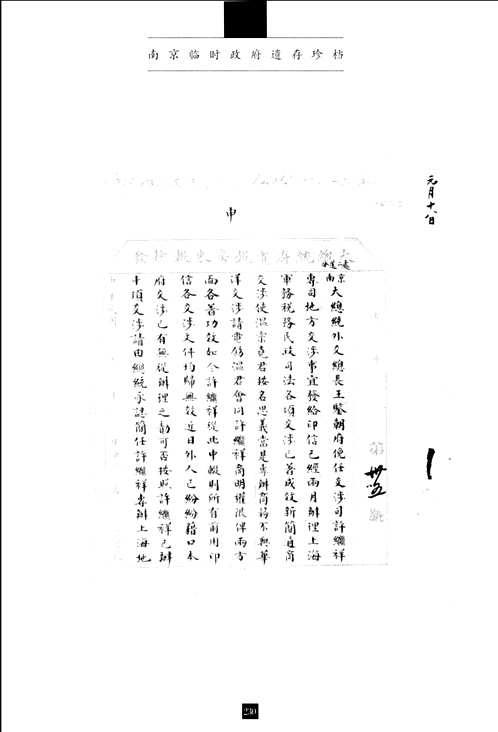 南京临时政府遗存珍档
元月十八日
申
第卅五號
南京
大總統外交總長王鑒朝府倪任交涉司許繼祥
專司地方交涉事宜發給印信已經兩月辦理上海
軍務稅務民政司法各項交涉已著成效新簡直商
交涉使溫宗堯君按名思義當是專辦商務不與華
洋交涉請電飭溫君會同許繼祥商明權限俾兩方
面各著功效如令許繼祥從此中輟則所有前用印
信各交涉文件均歸無效近日外人已紛紛藉口本
府交涉已有無從辦理之勢可否按照許繼祥已辦
十項交涉請由總統承認簡任許繼祥專辦上海地
230